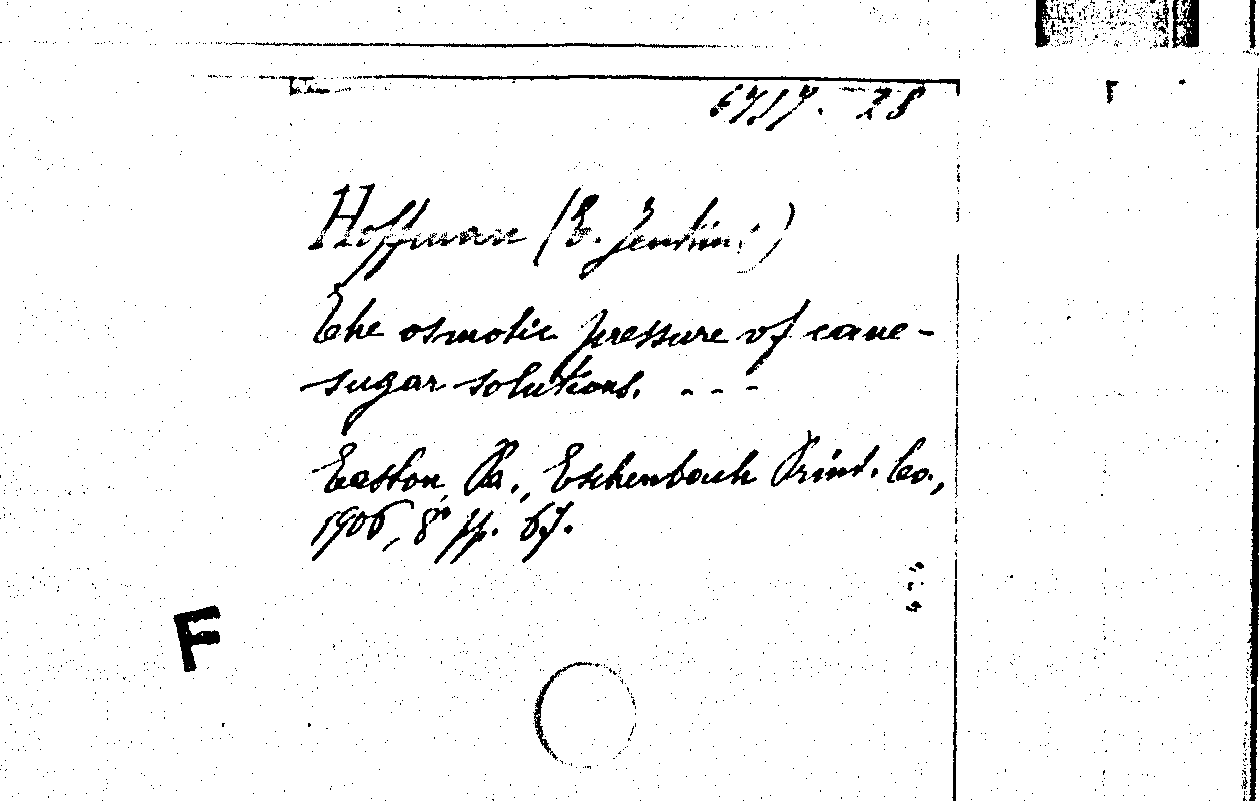 6717. 28
Hoffman (E. Jenkins)
The osmotic pressure of cane-
sugar solutions. - - -
Easton, Pa., Eschenbach Print. Co.,
1906, 8° pp. 67.
F